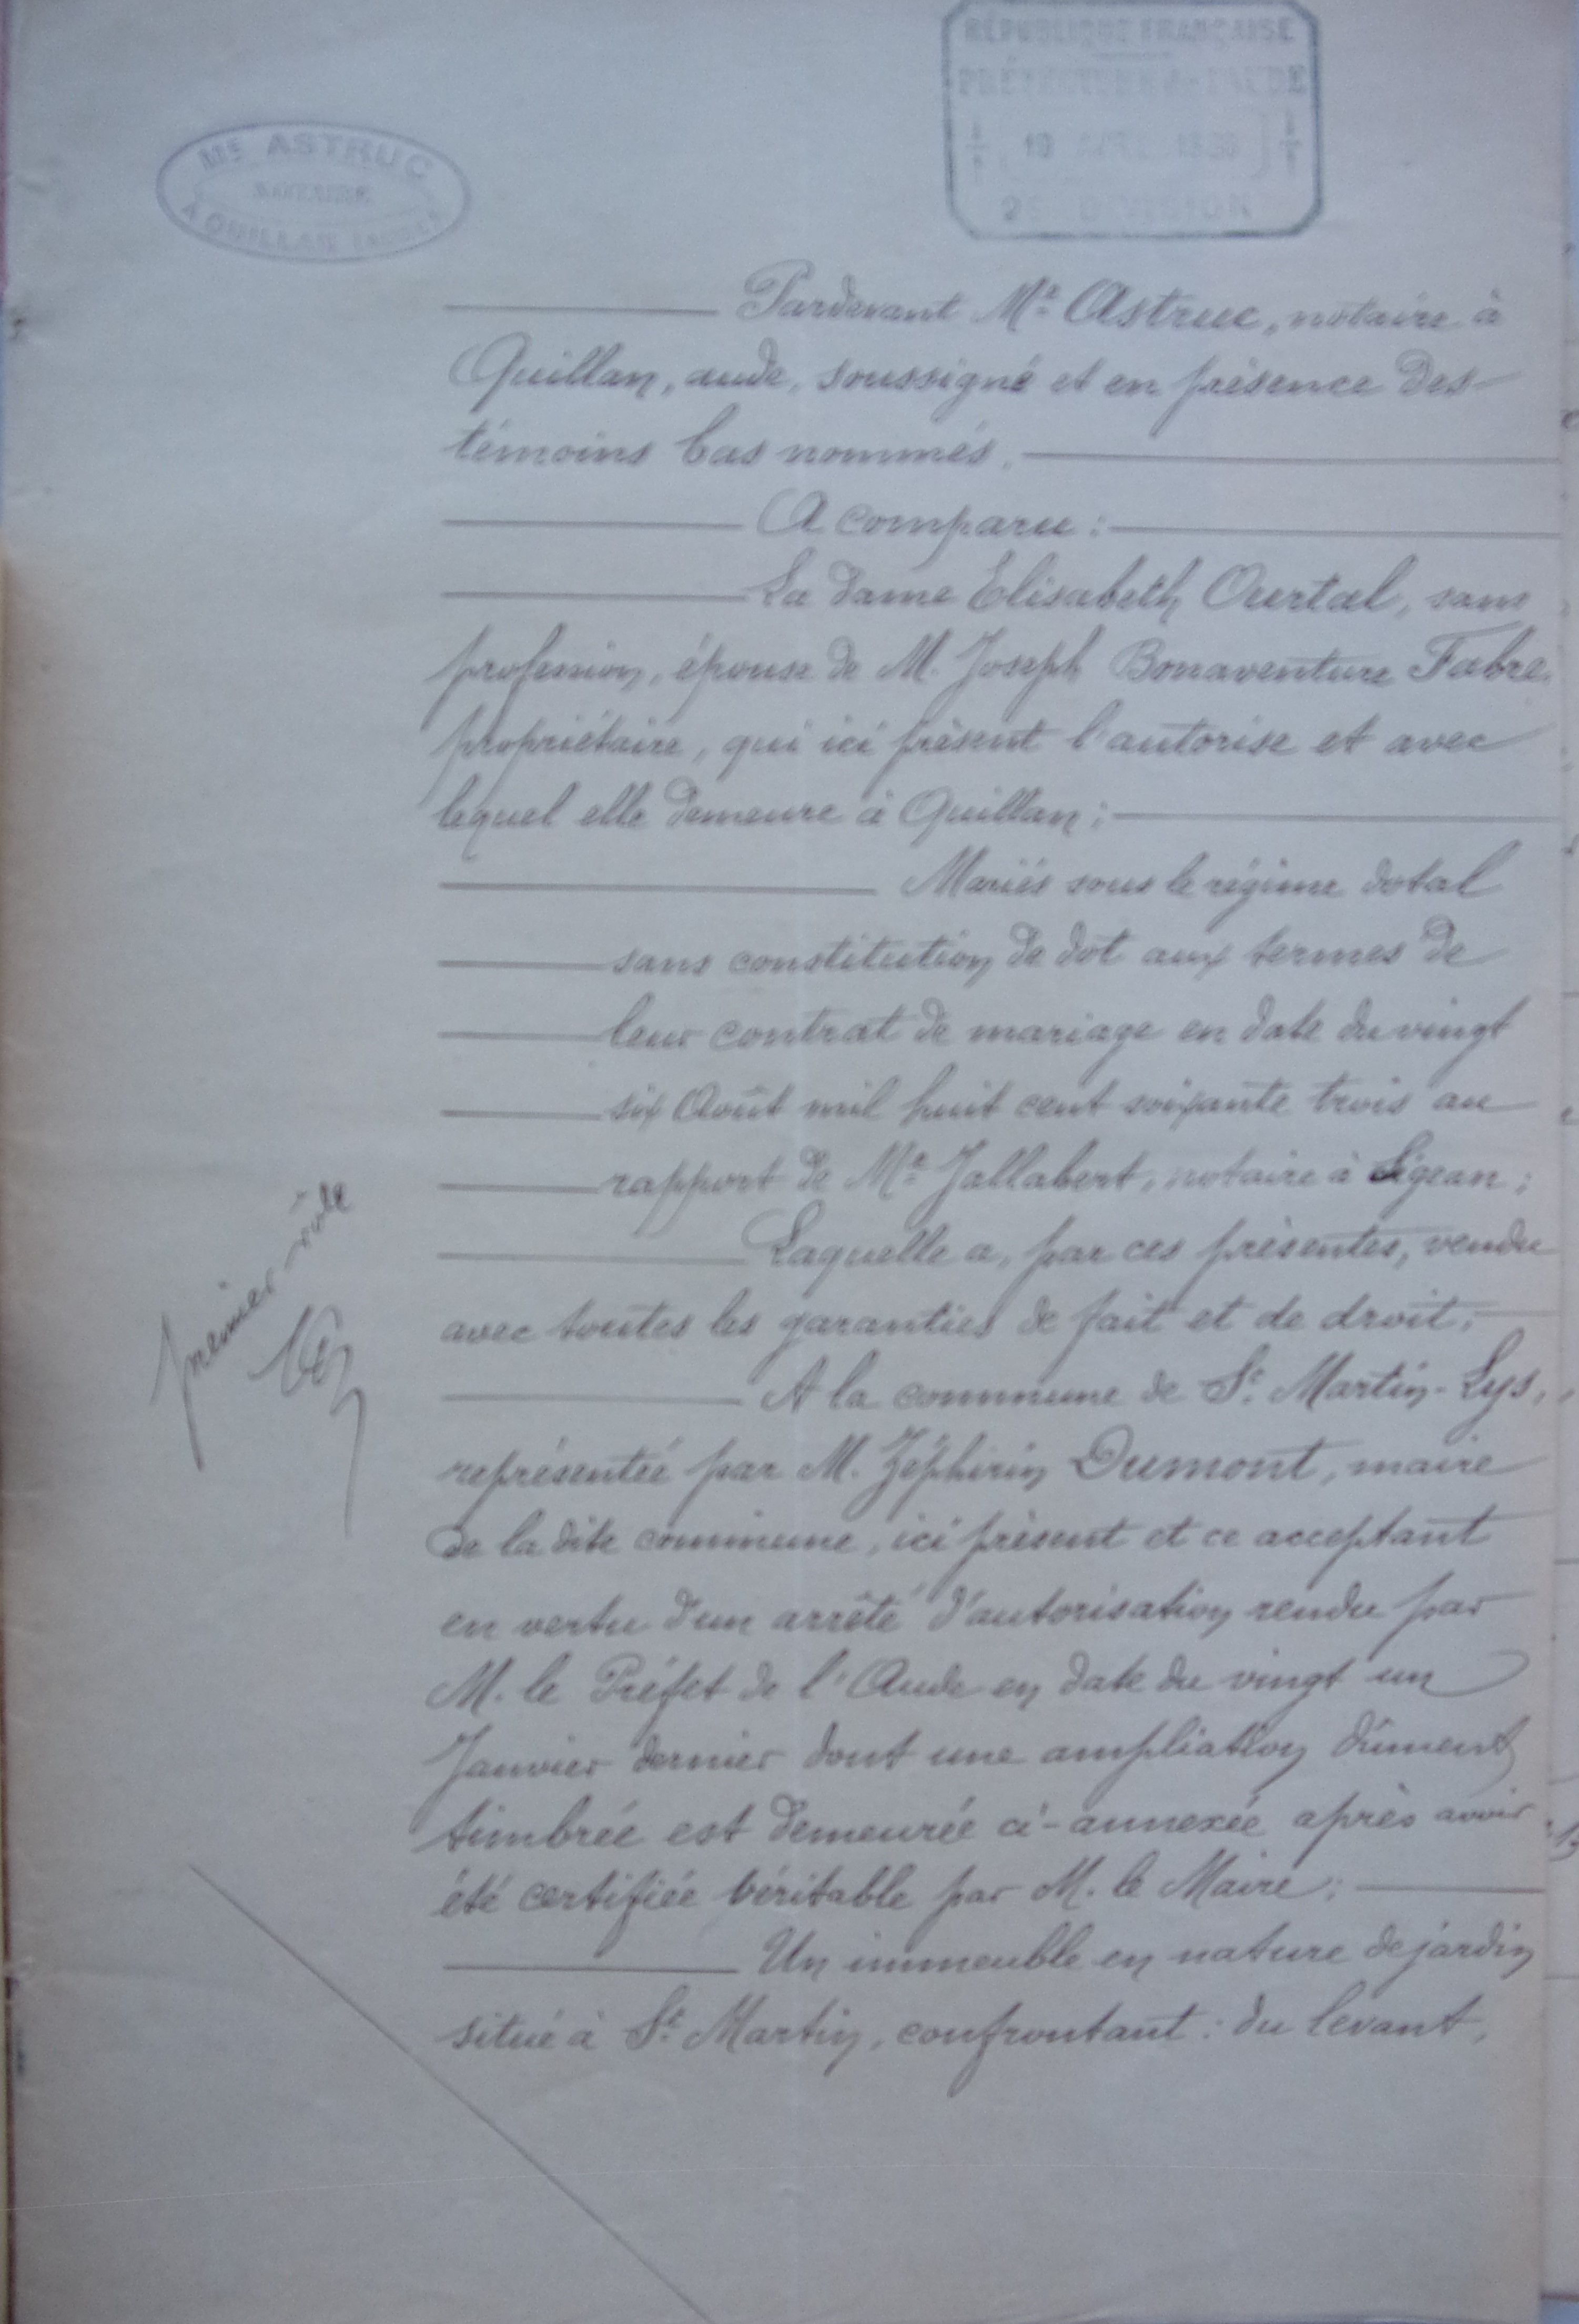 RÉPUBLIQUE FRANÇAISE
PRÉFECTURE DE L'AUDE
19
2E DIVISION
ME ASTRUC
NOTAIRE
A QUILLAN
Pardevant Me Astruc, notaire à
Quillan, aude, soussigné et en présence des
témoins bas nommés.
A comparu :
La dame Elisabeth Ourtal, sans
profession, épouse de M. Joseph Bonaventure Fabre,
propriétaire, qui ici présent l'autorise et avec
lequel elle demeure à Quillan ;
Mariés sous le régime dotal
sans constitution de dot aux termes de
leur contrat de mariage en date du vingt
six Août mil huit cent soixante trois au
rapport de Me Jallabert, notaire à Sigean ;
premier rôle
Laquelle a, par ces présentes, vendu
avec toutes les garanties de fait et de droit,
A la commune de St Martin-Lys,
représentée par M. Zéphirin Dumont, maire
de la dite commune, ici présent et ce acceptant
en vertu d'un arrêté d'autorisation rendu par
M. le Préfet de l'Aude en date du vingt un
Janvier dernier dont une ampliation dûment
timbrée est demeurée ci-annexée après avoir
été certifiée véritable par M. le Maire ;
Un immeuble en nature de jardin
situé à St Martin, confrontant : du levant,